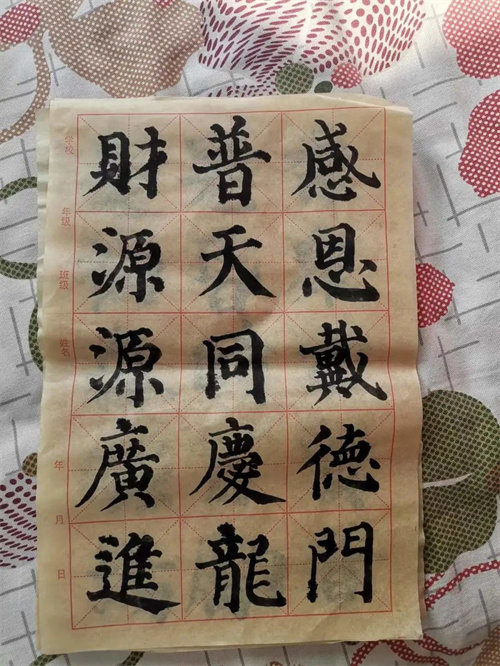 感恩戴德門
普天同慶龍
財源源廣進
学校
年级
班级
姓名
年
月
日